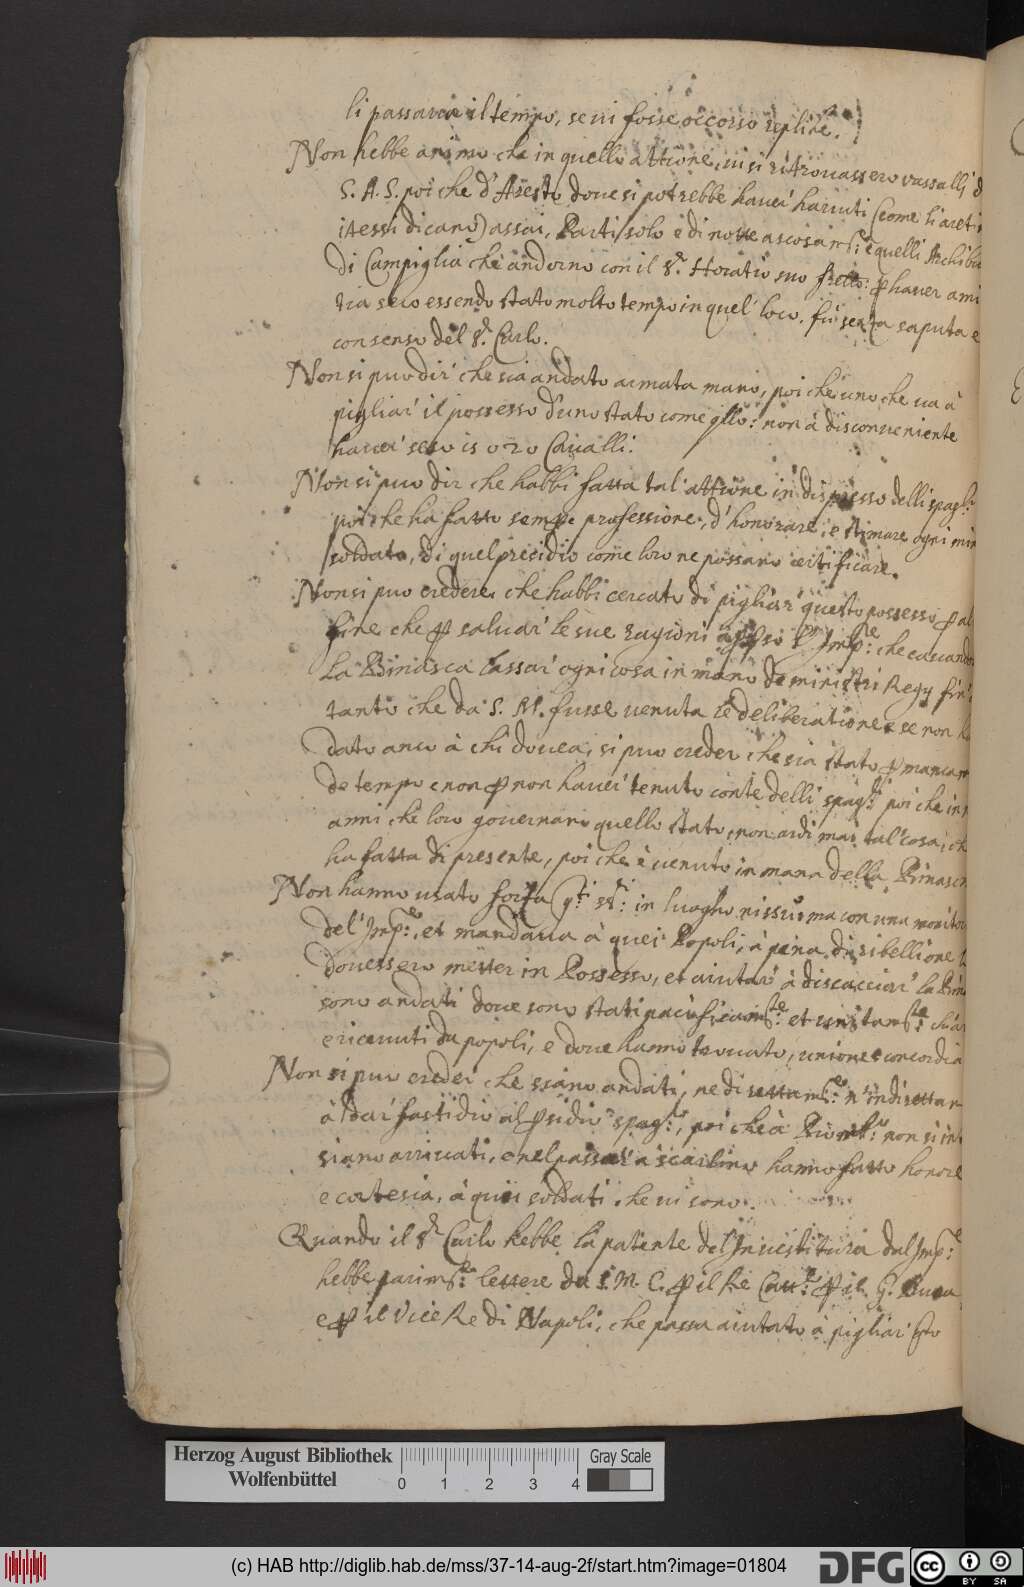 li passaria il tempo, se ui fosse occorso replicar.
Non hebbe animo che in quello attione, ui si ritrouassero vassalli d
S. A. S. poi che d'Aresto doue si potrebbe hauer hauuti (come li areti
istessi dicano) assai, Parti solo e di notte ascosamte: e quelli Archibu
di Campiglia che andorno con il Sr. Horatio suo frello: p hauer ami
tia seco essendo stato molto tempo in quel' loco. fù senza saputa e
consenso del Sr. Carlo.
Non si puo dir' che sia andato armata mano, poi che uno che ua à
pigliar' il possesso d'uno stato come qllo: non à disconueniente
hauer' seco 15 o 20 Caualli.
Non si puo dir che habbi fatta tal' attione in dispresso delli spagli:
poi che ha fatto sempe professione, d'honorare, e stimare ogni min
soldato, di quel presidio come loro ne possano certificare.
Non si puo credere che habbi cercato di pigliar' questo possesso p al
fine che p saluar' le sue ragioni Impre: che cascando
La Binasca lassar' ogni cosa in mano de ministri Regy fin'
tanto che da S. M. fusse uenuta le deliberatione e se non ha
dato anco à chi douea, si puo creder che sia stato p mancam
de tempo e non p non hauer' tenuto conte delli spagli: poi che in
anni che loro gouernano quello stato, non ardi mai tal' cosa, ch
ha fatta di presente, poi che è uenuto in mana della Binasca
Non hanno usato forza qti sri: in luogho nissuo ma con una monitor
del' Impre:, et mandaua à quei Popoli, à pena di ribellione
douessero metter in Possesso, et aiutar' à discacciar' la Bina
sono andati doue sono stati pacificamte: et unitamte: chia
e riceuuti da popoli, e doue hanno trouato, unione e concordia
Non si puo creder che siano andati, ne direttamte: n' indirettam
à dar' fastidio al psidio spaglo, poi che à Piombo: non si in
siano arriuati, e nel passar' a scarlino hanno fatto honore
e cortesia, à quei soldati che ui sono.
Quando il Sr. Carlo hebbe la patente del' Inuestitura dal Impre:
hebbe parimte: lettere da S. M. C. p il Re Catto: p il G. Duca
e p il Vice Re di Napoli, che possa aiutato à pigliar' sto
Herzog August Bibliothek
Wolfenbüttel
0 1 2 3 4
Gray Scale
(c) HAB http://diglib.hab.de/mss/37-14-aug-2f/start.htm?image=01804
DFG
cc BY SA